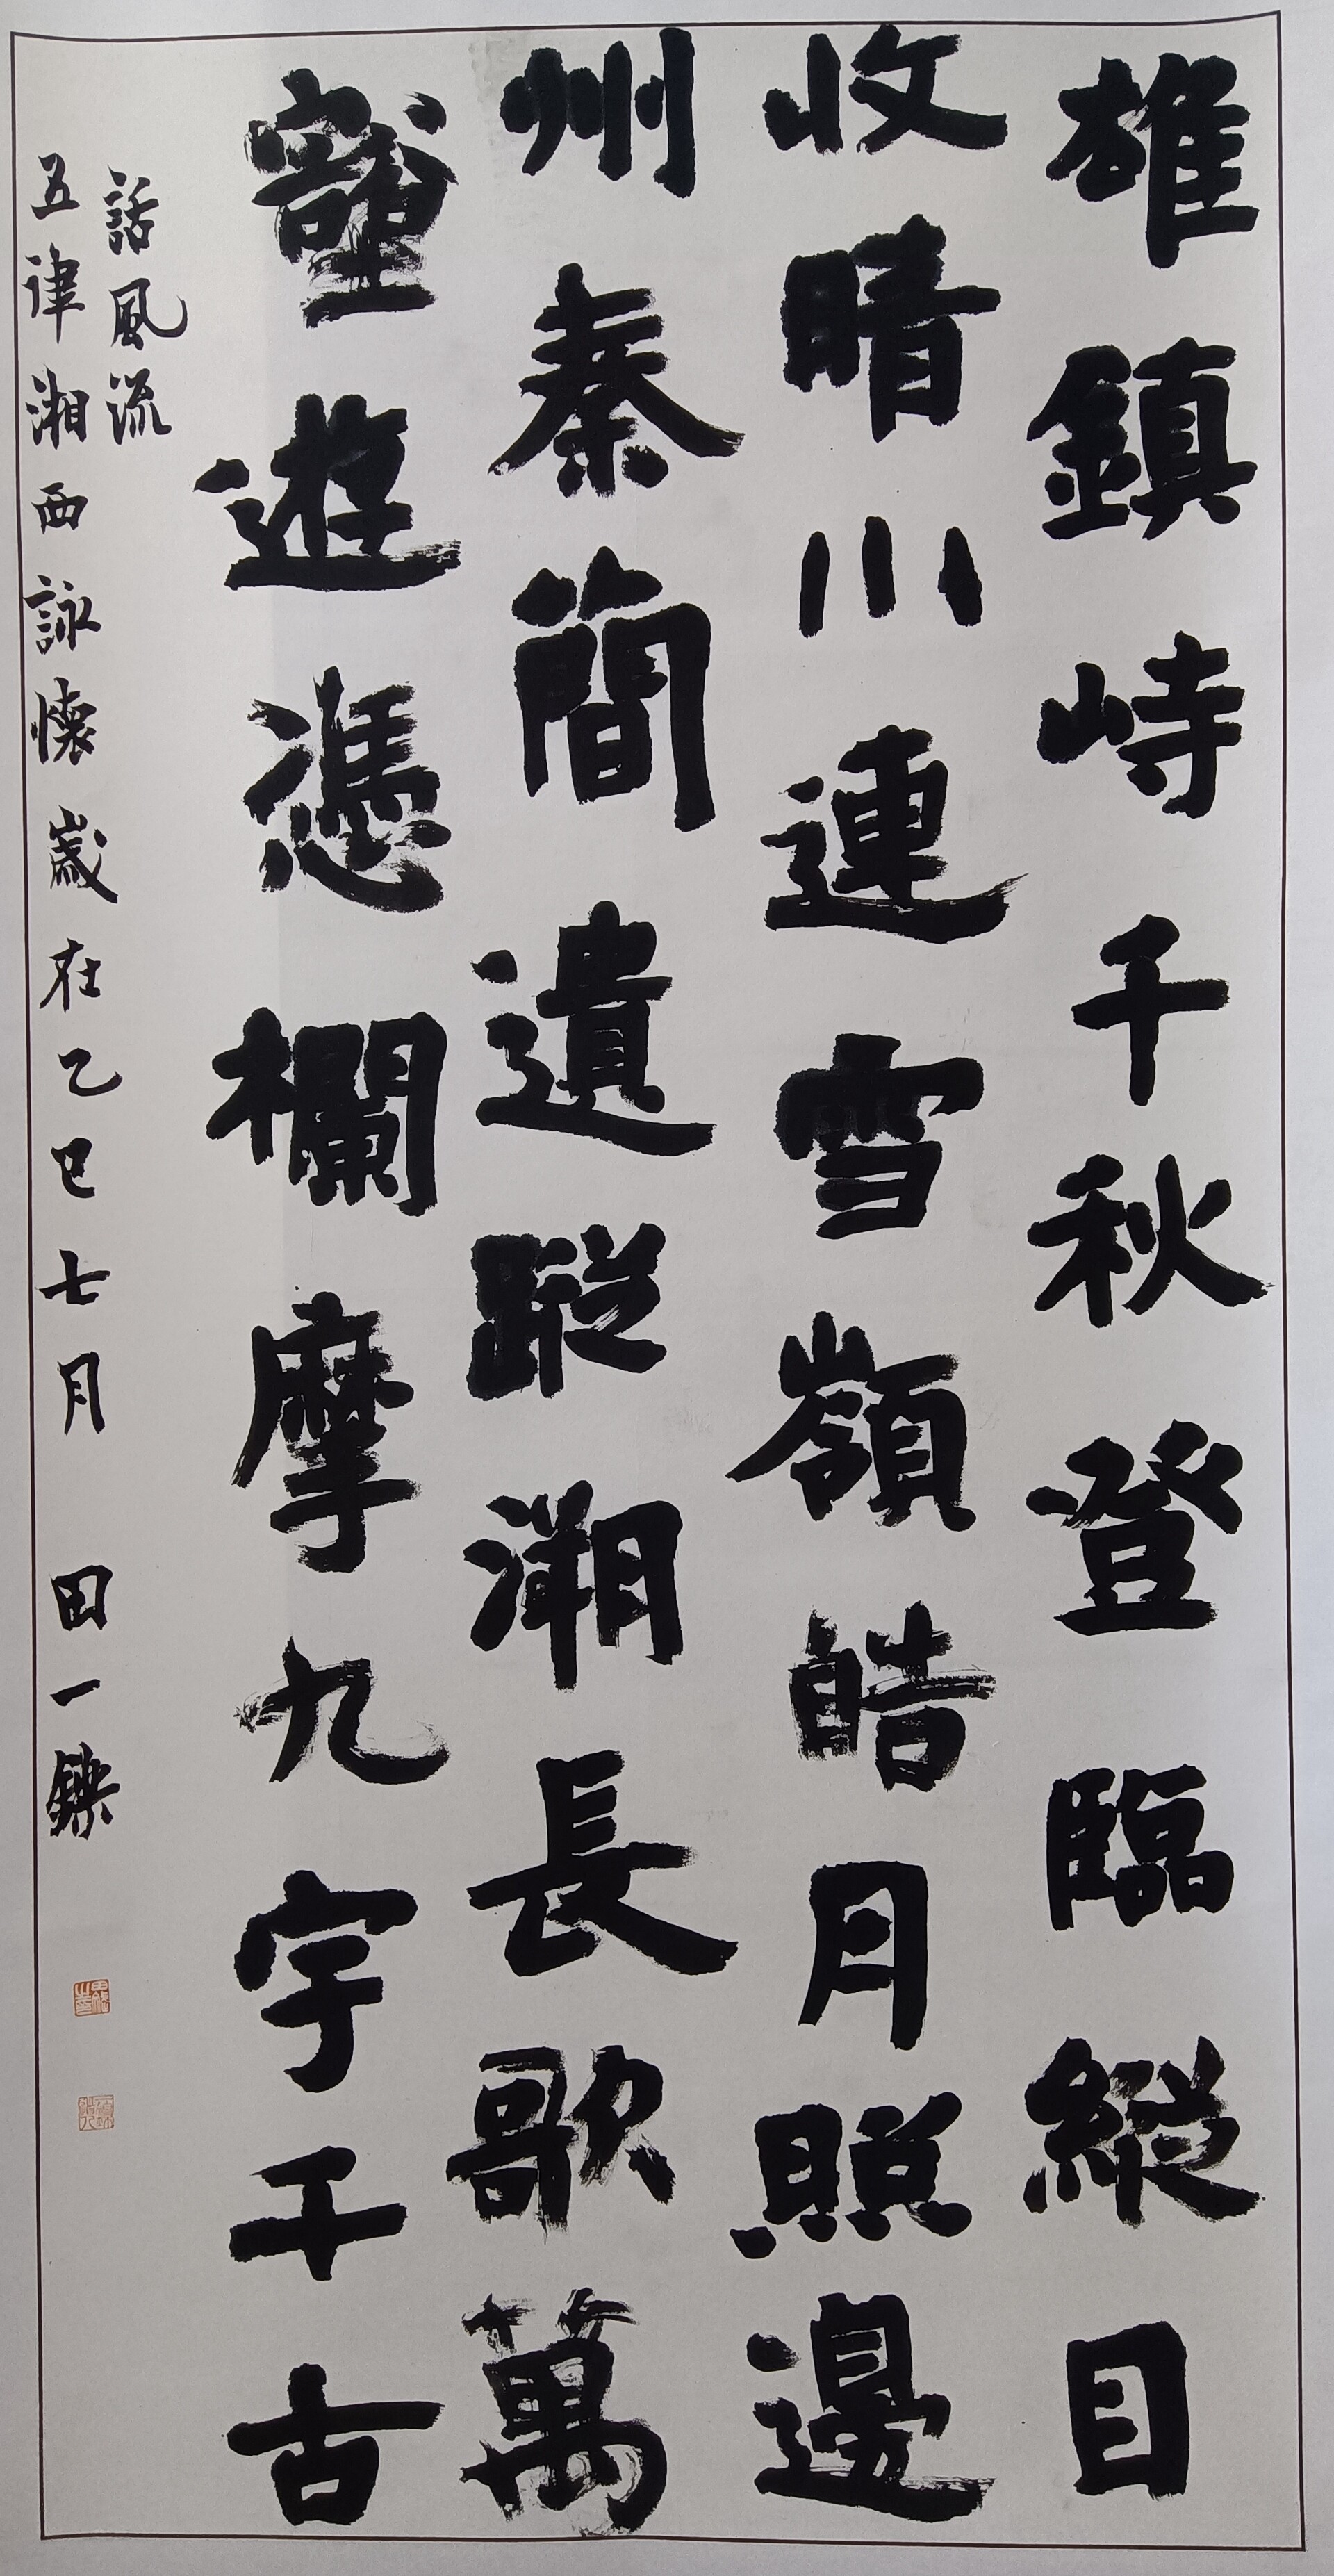 雄鎮峙千秋登臨縱目
收晴川連雪嶺皓月照邊
州秦簡遺蹤溯長歌萬
壑遊憑欄摩九宇千古
話風流
五律湘西詠懷歲在乙巳七月 田一鑠